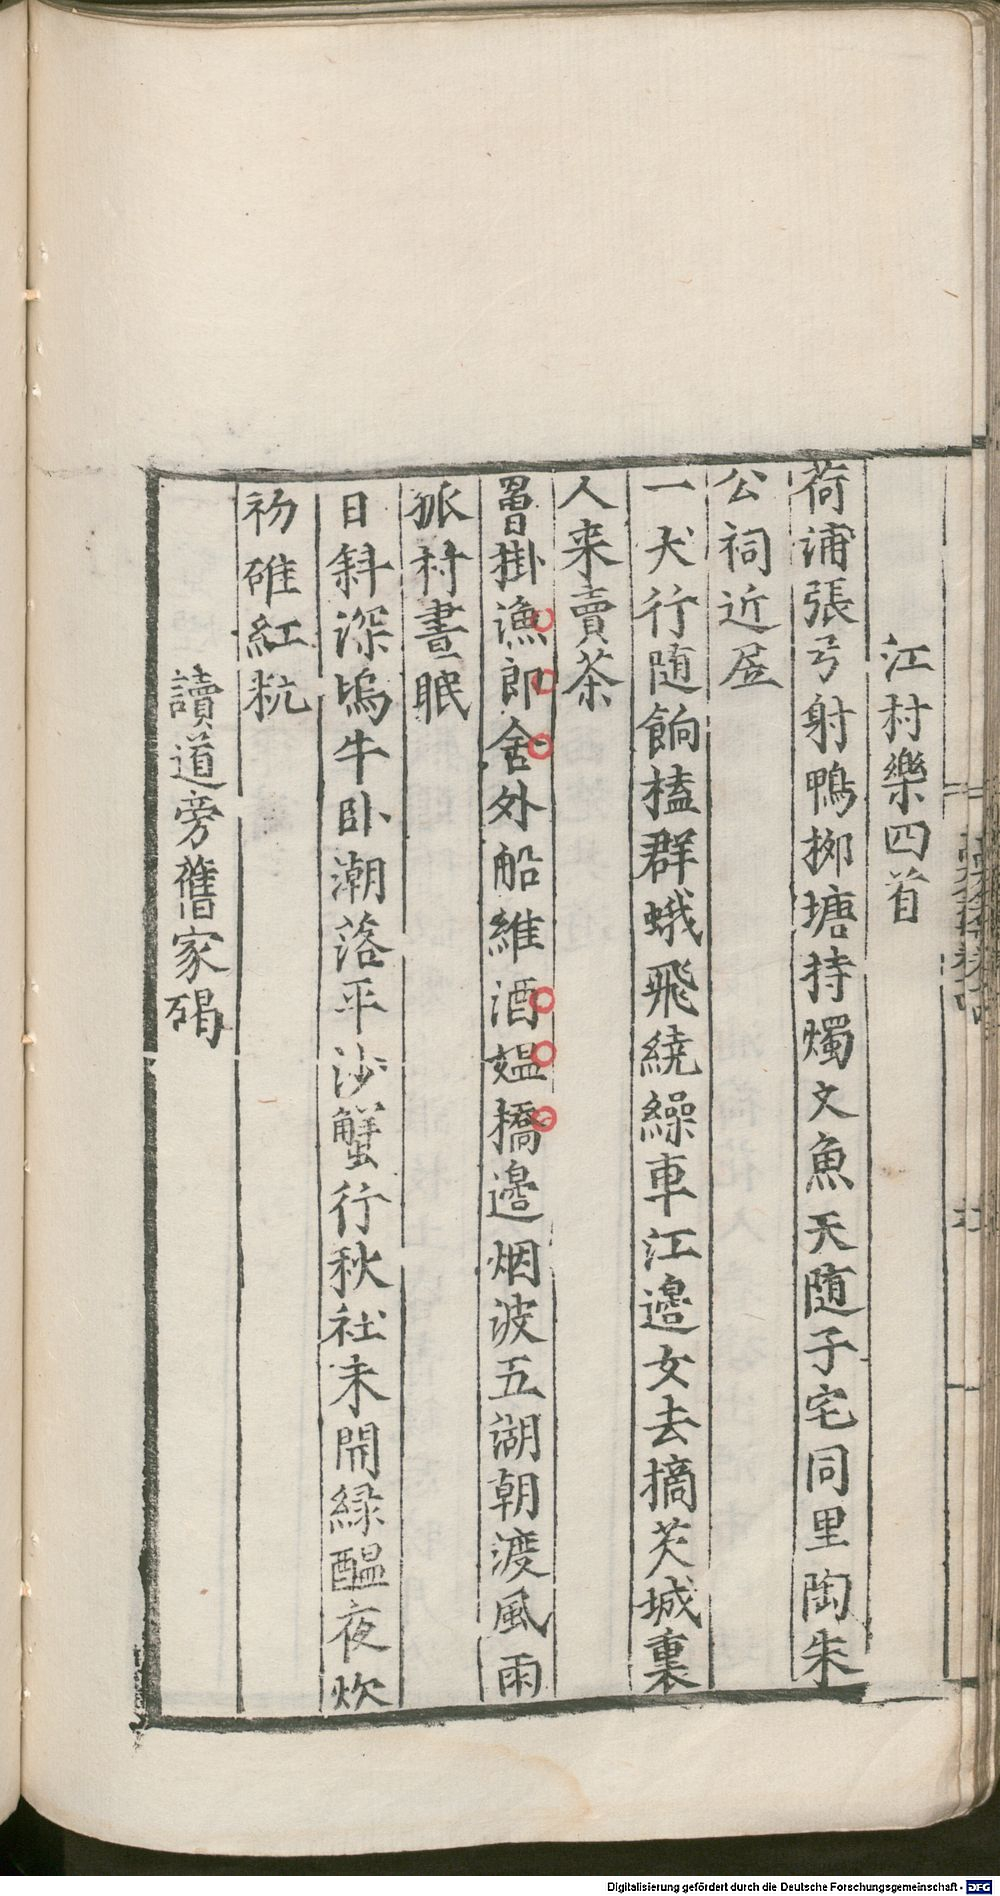 江村樂四首
荷浦張弓射鴨栁塘持燭文魚天随子宅同里陶朱
公祠近居
一犬行随餉榼群蛾飛繞繰車江邉女去摘芡城裏
人来賣茶
罾掛漁郎舍外船維酒媪橋邉烟波五湖朝渡風雨
孤村晝眠
日斜深塢牛卧潮落平沙蟹行秋社未開緑醖夜炊
初碓紅秔
讀道旁舊家碣
Digitalisierung gefördert durch die Deutsche Forschungsgemeinschaft - DFG